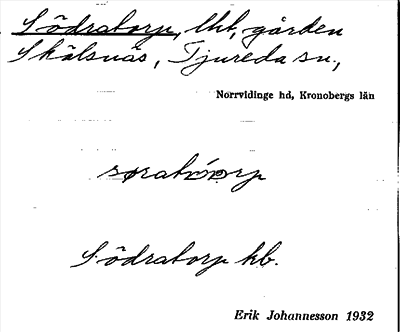 Södratorp, lht, gården
Skälsnäs, Tjureda sn.,
Norrvidinge hd, Kronobergs län
Södratorp kb.
Erik Johannesson 1932